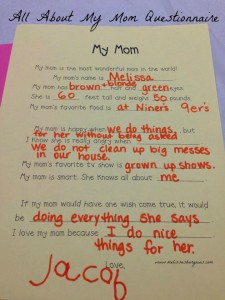 All About My Mom Questionnaire
My Mom
My mom is the most wonderful mom in the world!
My mom's name is Melissa
My mom has brown + blonde hair and green eyes
She is 60 feet tall and weighs 50 pounds
My mom's favorite food is at Niners 9er's
My mom is happy when we do things but
for her without being asked
I know she is really angry when
we do not clean up big messes
in our house.
My mom's favorite tv show is grown up shows.
My mom is smart. She knows all about me
If my mom would have one wish come true, it would
be doing everything she says
I love my mom because I do nice
things for her.
Love,
Jacob